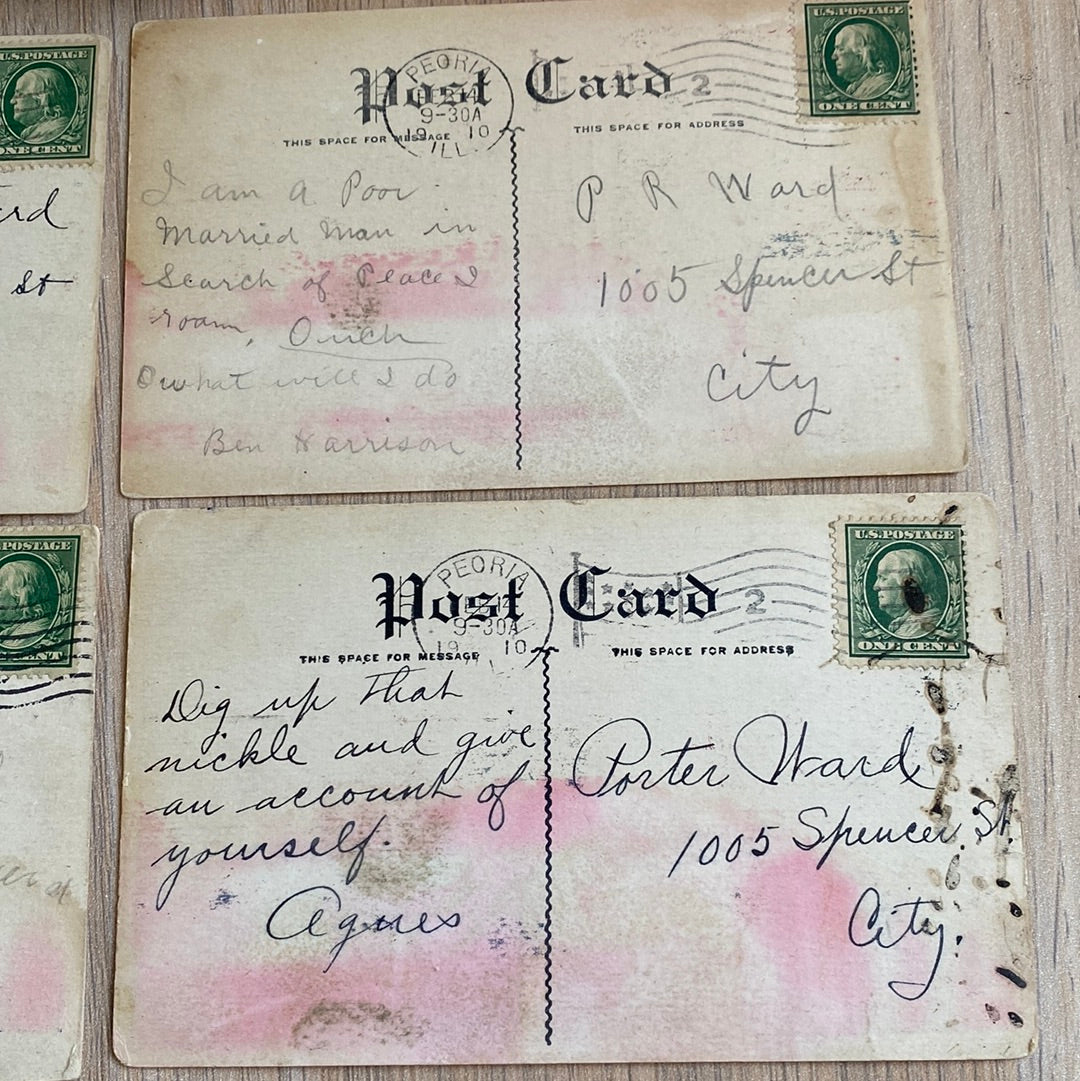 U.S.POSTAGE
ONE CENT
St
U.S.POSTAGE
CENT
Post Card
PEORIA
9-30A
19 10
ILL.
2
U.S.POSTAGE
ONE CENT
THIS SPACE FOR MESSAGE
THIS SPACE FOR ADDRESS
I am a Poor
Married Man in
Search of Peace I
roam, Ouch
O what will I do
Ben Harrison
P R Ward
1005 Spencer St
City
Post Card
PEORIA
9-30A
19 10
2
U.S.POSTAGE
ONE CENT
THIS SPACE FOR MESSAGE
THIS SPACE FOR ADDRESS
Dig up that
nickle and give
an account of
yourself.
Agnes
Porter Ward
1005 Spencer St.
City.